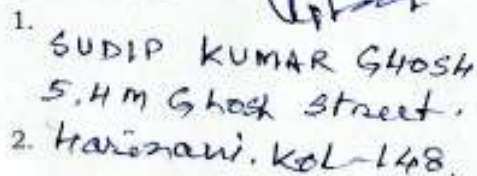 1.
SUDIP KUMAR GHOSH
5, H M Ghosh Street.
2. Harinavi. Kol-148.